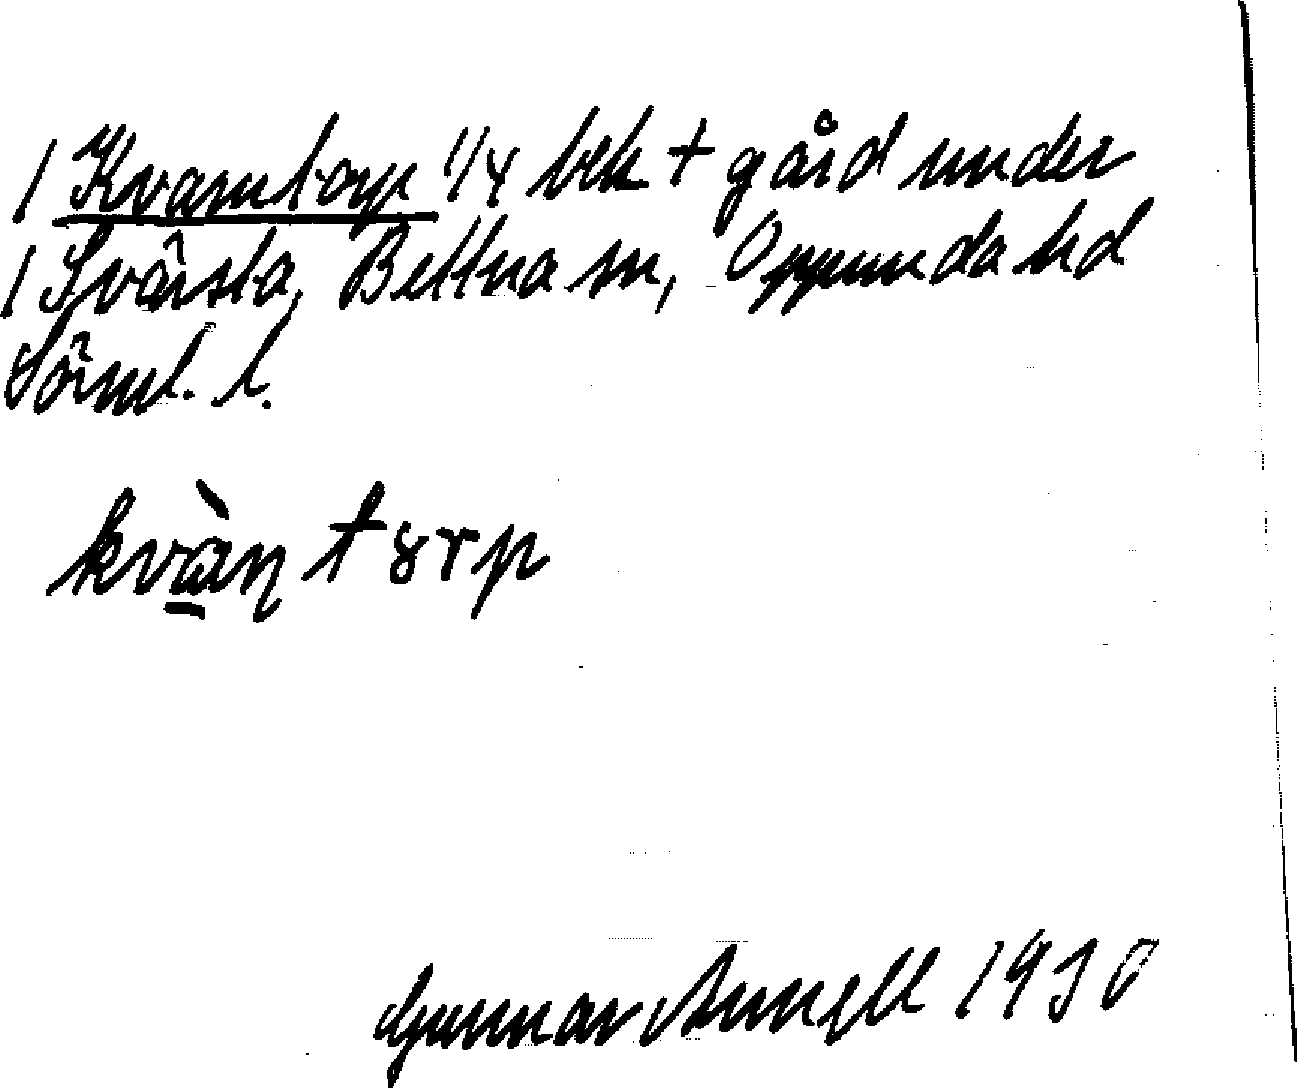 / Kvarntorp 1/4 bek + gård under
/ Svärsta, Bettna sn, Oppunda hd
Sörml. l.
kvàṇ tɤrp
Gunnar 1930